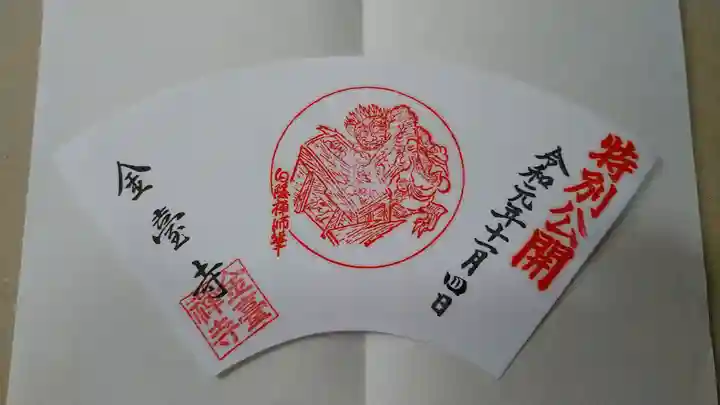 特別公開
令和元年十一月四日
白隠禅師筆
金臺寺
金臺
禅寺